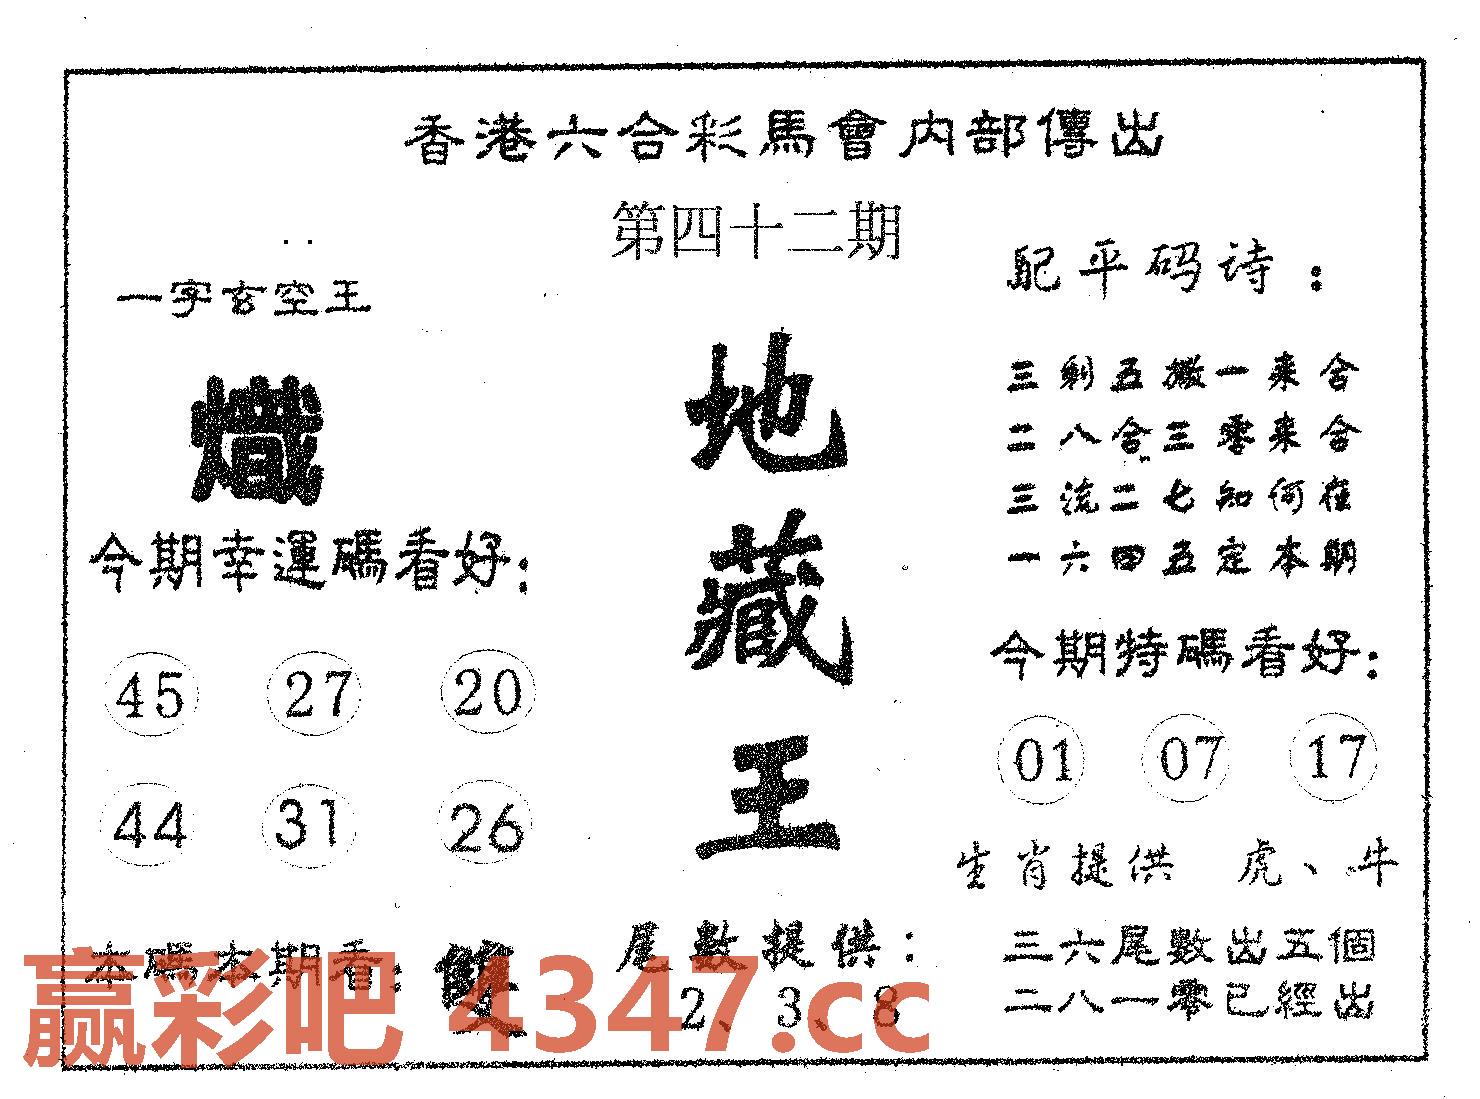 香港六合彩馬會内部傳出
第四十二期
一字玄空王
熾
今期幸運碼看好:
45 27 20
44 31 26
本碼本期看: 雙
地藏王
尾數提供:
2、3、8
配平码诗:
三剩五搬一来合
二八合三零来合
三流二七知何在
一六四五定本期
今期特碼看好:
01 07 17
生肖提供 虎、牛
三六尾數出五個
二八一零已經出
赢彩吧 4347.cc